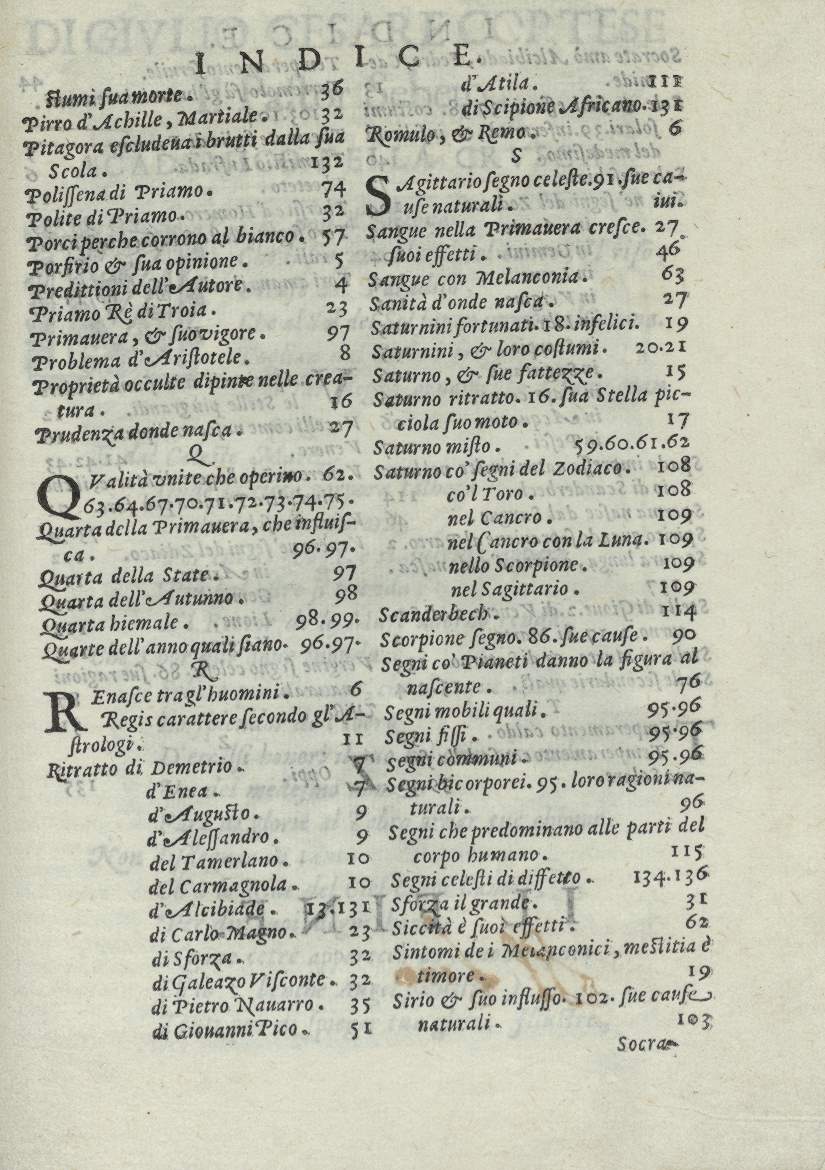 INDICE.
ſtumi ſua morte. 36
Pirro d'Achille, Martiale. 32
Pitagora eſcludeua i brutti dalla ſua
Scola. 132
Poliſſena di Priamo. 74
Polite di Priamo. 32
Porci perche corrono al bianco. 57
Porfirio & ſua opinione. 5
Predittioni dell'Autore. 4
Priamo Rè di Troia. 23
Primauera, & ſuo vigore. 97
Problema d'Ariſtotele. 8
Proprietà occulte dipinte nelle crea-
tura. 16
Prudenza donde naſca. 27
Q
QValità vnite che operino. 62.
63.64.67.70.71.72.73.74.75.
Quarta della Primauera, che influiſ-
ca. 96.97.
Quarta della State. 97
Quarta dell'Autunno. 98
Quarta hiemale. 98.99.
Quarte dell'anno quali ſiano. 96.97.
R
REnaſce tra gl'huomini. 6
Regis carattere ſecondo gl'A-
ſtrologi. 11
Ritratto di Demetrio. 7
d'Enea. 7
d'Auguſto. 9
d'Aleſſandro. 9
del Tamerlano. 10
del Carmagnola. 10
d'Alcibiade. 13.131
di Carlo Magno. 23
di Sforza. 32
di Galeazo Viſconte. 32
di Pietro Nauarro. 35
di Giouanni Pico. 51
d'Atila. 111
di Scipione Africano. 131
Romulo, & Remo. 6
S
SAgittario ſegno celeſte. 91. ſue ca-
uſe naturali. iui.
Sangue nella Primauera creſce. 27.
ſuoi effetti. 46
Sangue con Melanconia. 63
Sanità d'onde naſca. 27
Saturnini fortunati. 18. infelici. 19
Saturnini, & loro coſtumi. 20.21
Saturno, & ſue fattezze. 15
Saturno ritratto. 16. ſua Stella pic-
ciola ſuo moto. 17
Saturno miſto. 59.60.61.62
Saturno co' ſegni del Zodiaco. 108
co'l Toro. 108
nel Cancro. 109
nel Cancro con la Luna. 109
nello Scorpione. 109
nel Sagittario. 109
Scanderbech. 114
Scorpione ſegno. 86. ſue cauſe. 90
Segni co' Pianeti danno la figura al
naſcente. 76
Segni mobili quali. 95.96
Segni fiſſi. 95.96
Segni còmmuni. 95.96
Segni bicorporei. 95. loro ragioni na-
turali. 96
Segni che predominano alle parti del
corpo humano. 115
Segni celeſti di diffetto. 134.136
Sforza il grande. 31
Siccità è ſuoi effetti. 62
Sintomi de i Melanconici, meſtitia è
timore. 19
Sirio & ſuo influſſo. 102. ſue cauſe
naturali. 103
Socra-